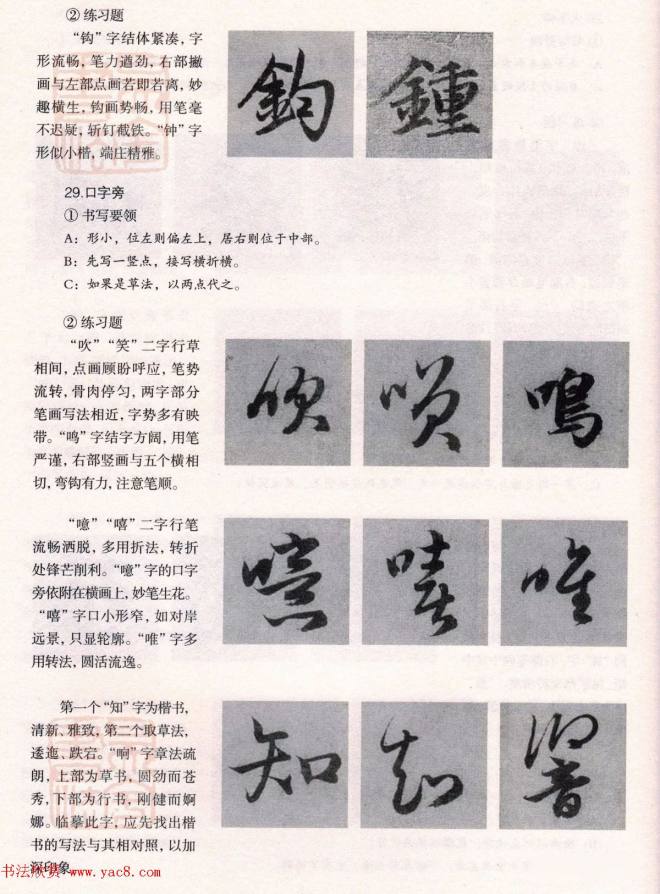 ② 练习题
“钩”字结体紧凑，字
形流畅，笔力遒劲，右部撇
画与左部点画若即若离，妙
趣横生，钩画势畅，用笔毫
不迟疑，斩钉截铁。“钟”字
形似小楷，端庄精雅。
鍾
29.口字旁
① 书写要领
A：形小，位左则偏左上，居右则位于中部。
B：先写一竖点，接写横折横。
C：如果是草法，以两点代之。
② 练习题
“吹”“笑”二字行草
相间，点画顾盼呼应，笔势
流转，骨肉停匀，两字部分
笔画写法相近，字势多有映
带。“鸣”字结字方阔，用笔
严谨，右部竖画与五个横相
切，弯钩有力，注意笔顺。
吹 鳴
“噫”“嘻”二字行笔
流畅洒脱，多用折法，转折
处锋芒削利。“噫”字的口字
旁依附在横画上，妙笔生花。
“嘻”字口小形窄，如对岸
远景，只显轮廓。“唯”字多
用转法，圆活流逸。
噫 嘻 唯
第一个“知”字为楷书，
清新、雅致，第二个取草法，
逶迤、跌宕。“响”字章法疏
朗，上部为草书，圆劲而苍
秀，下部为行书，刚健而婀
娜。临摹此字，应先找出楷
书的写法与其相对照，以加
深印象。
知 知 響
书法欣赏 www.yac8.com